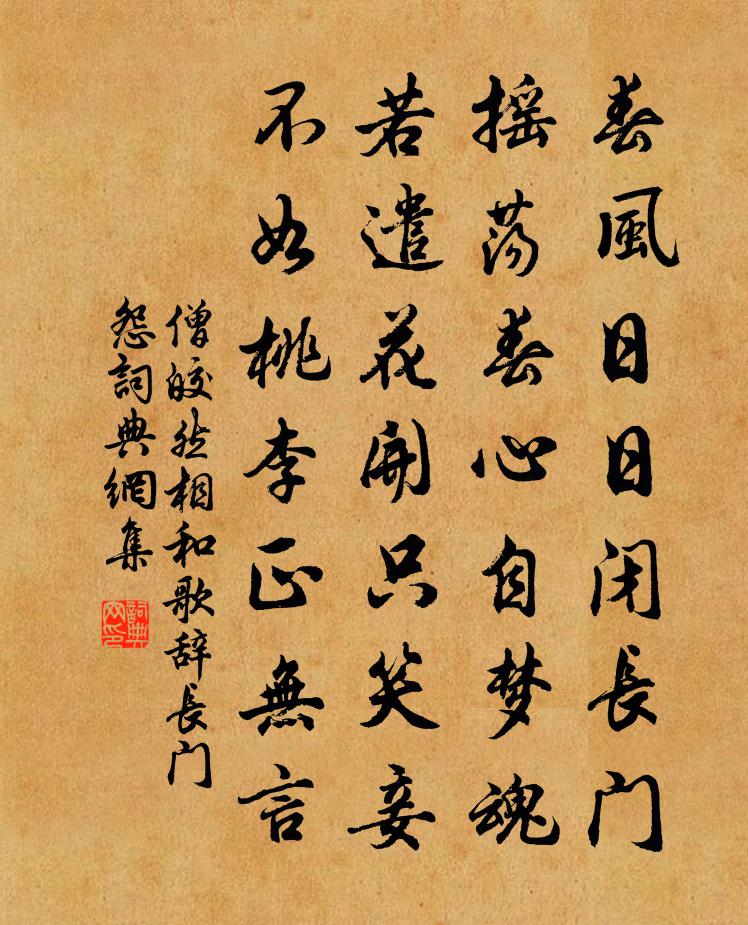 春風日日闭長门
摇荡春心自梦魂
若遣花開只笑妾
不如桃李正無言
僧皎然相和歌辞長门
怨詞典網集
詞典
网印